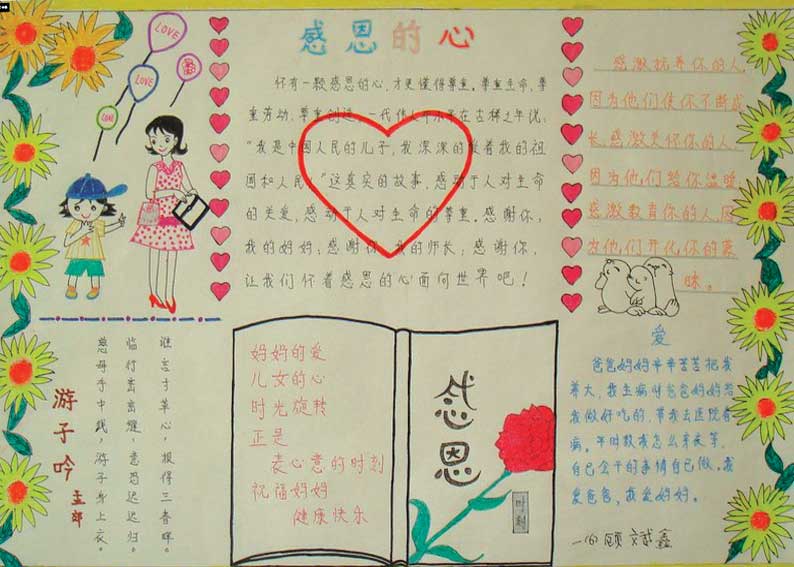 LOVE
LOVE
感恩的心
怀有一颗感恩的心,才更懂得尊重。尊重生命,尊
重劳动,尊重创造。一代伟人邓小平在古稀之年说:
“我是中国人民的儿子,我深深的爱着我的祖
国和人民!”这真实的故事,感动于人对生命
的关爱,感动于人对生命的尊重。感谢你,
我的妈妈;感谢你,我的师长;感谢你,
让我们怀着感恩的心面向世界吧!
感激抚养你的人,
因为他们使你不断成
长,感激关怀你的人,
因为他们给你温暖,
感激教育你的人,因
为他们开化你的蒙
昧。
游子吟
孟郊
慈母手中线,游子身上衣。
临行密密缝,意恐迟迟归。
谁言寸草心,报得三春晖。
妈妈的爱
儿女的心
时光旋转
正是
表心意的时刻
祝福妈妈
健康快乐
感恩
爱
爸爸妈妈辛辛苦苦把我
养大,我生病时爸爸妈妈给
我做好吃的,带我去医院看
病。平时教我怎么
自己会干的事情自己做。我
爱爸爸,我爱妈妈。
一(6) 顾斌鑫